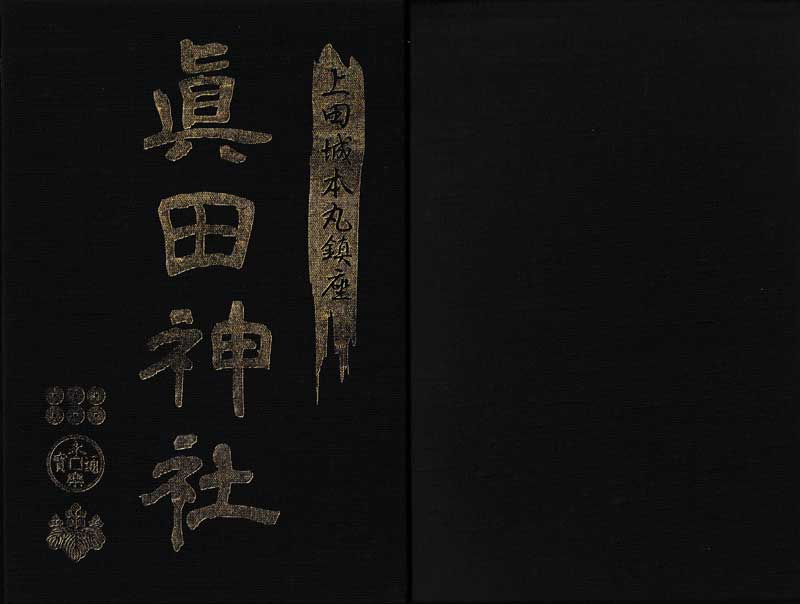 上田城本丸鎮座
眞田神社
永樂通寶